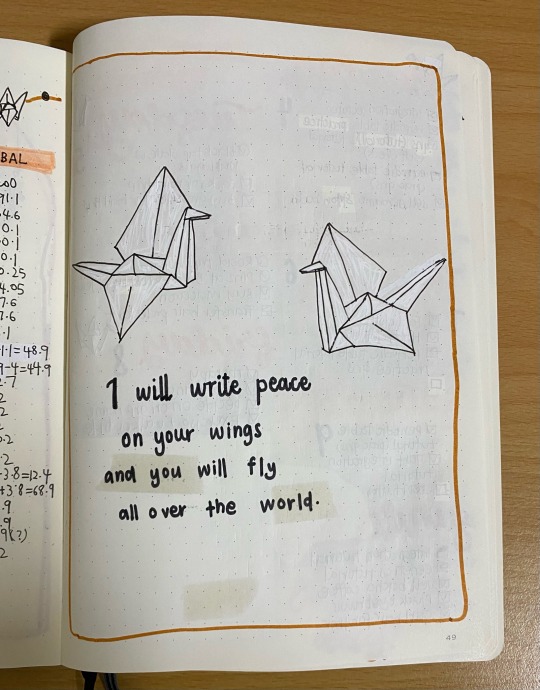 BAL
91.1
4.6
0.1
0.1
0.1
0.25
4.05
7.6
7.6
.1
1.1=48.9
9-4=44.9
2.7
2
2
2
0.2
.2
+3.8=12.4
+3.8=68.9
.9
.9
.9(?)
2
I will write peace
on your wings
and you will fly
all over the world.
49